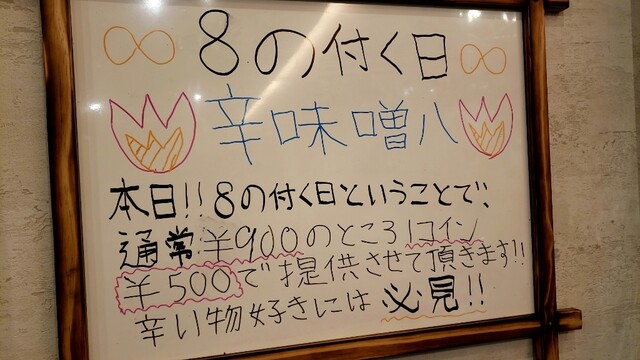 ∞ 8の付く日 ∞
辛味噌八
本日!! 8の付く日ということで、
通常¥900のところ1コイン
¥500で提供させて頂きます!!
辛い物好きには必見!!